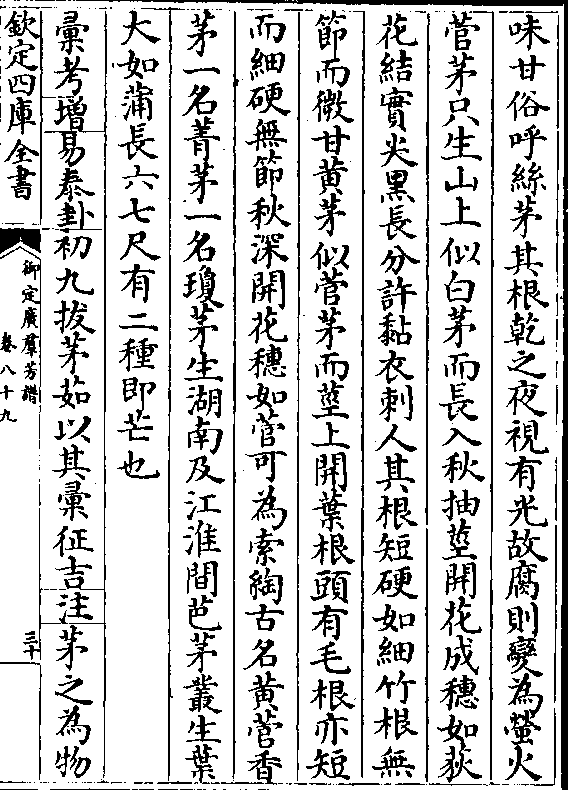 味甘俗呼絲茅其根乾之夜視有光故腐則變為螢火
菅茅只生山上似白茅而長入秋抽莖開花成穗如荻
花結實尖黑長分許黏衣刺人其根短硬如細竹根無
節而微甘黃茅似菅茅而莖上開葉根頭有毛根亦短
而細硬無節秋深開花穗如菅可為索綯古名黃菅香
茅一名菁茅一名瓊茅生湖南及江淮間芭茅叢生葉
大如蒲長六七尺有二種即芒也
彙考增易泰卦初九拔茅茹以其彙征吉注茅之為物
欽定四庫全書
御定廣羣芳譜
卷八十九
三十